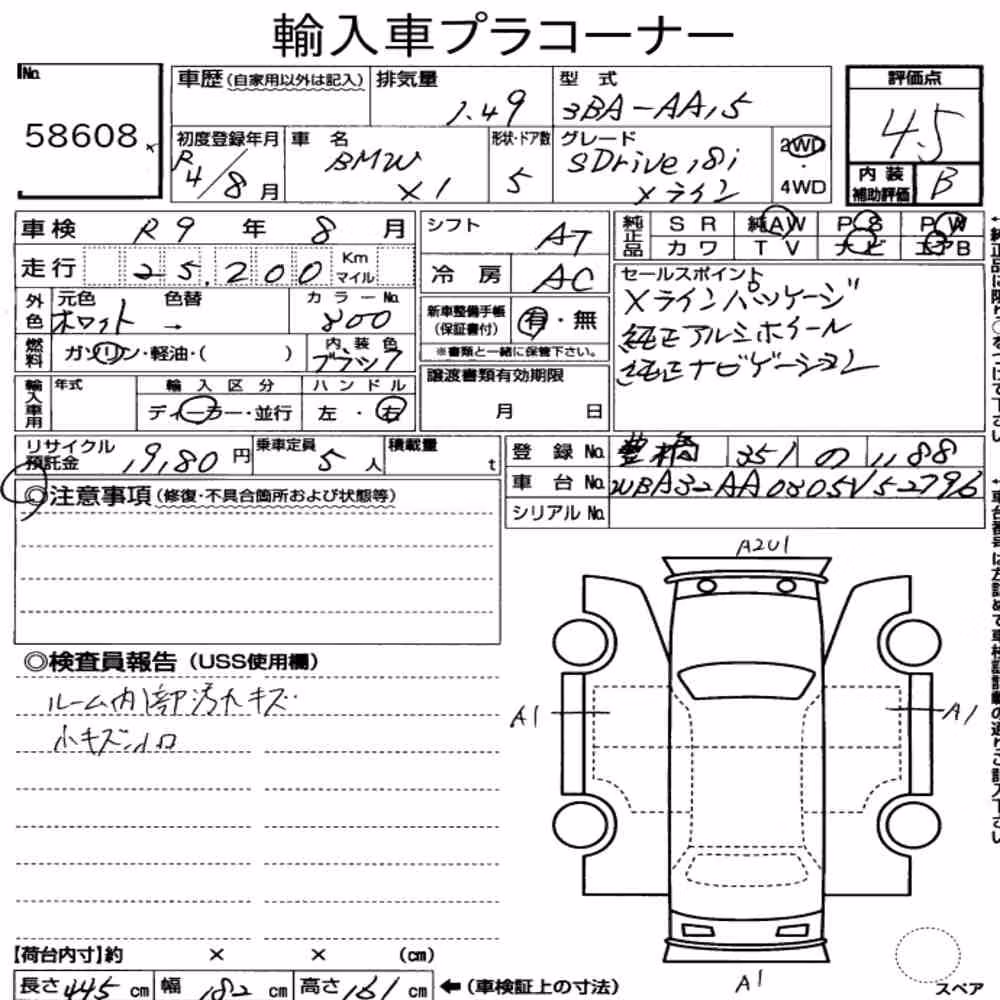 輸入車プラコーナー
No.
58608
車歴(自家用以外は記入)
排気量
1.49
型 式
3BA-AA15
評価点
4.5
初度登録年月
R4/8月
車 名
BMW
X1
形状・ドア数
5
グレード
SDrive18i
Xライン
2WD
・
4WD
内 装
補助評価
B
車検 R9 年 8 月
走行 25,200 Km マイル
外色
元色
ホワイト
色替
→
カラーNo.
300
燃料
ガソリン・軽油・( )
内 装 色
ブラック
輸入車用
年式
輸 入 区 分
ディーラー・並行
ハ ン ド ル
左 ・ 右
シフト AT
冷 房 AC
新車整備手帳
(保証書付)
有・無
※書類と一緒に保管下さい。
譲渡書類有効期限
月 日
純正品
S R 純AW P S P W
カワ T V ナビ エアB
セールスポイント
Xラインパッケージ
純正アルミホイール
純正ナビゲーション
リサイクル
預託金
19,80 円
乗車定員
5 人
積載量
t
登 録 No. 豊橋 351 の 1188
車 台 No. WBA32AA0805V52796
シリアル No.
◎注意事項(修復・不具合箇所および状態等)
◎検査員報告(USS使用欄)
ルーム内部汚れキズ
小キズ凹
A2U1
A1
A1
A1
スペア
【荷台内寸】約 × × (cm)
長さ 445 cm 幅 182 cm 高さ 161 cm
←(車検証上の寸法)